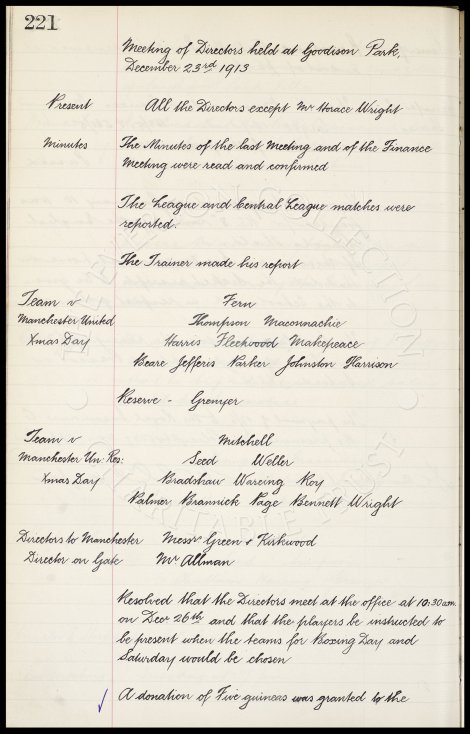 221
Meeting of Directors held at Goodison Park,
December 23rd 1913
Present All the Directors except Mr Horace Wright
Minutes The Minutes of the last Meeting and of the Finance
Meeting were read and confirmed
The League and Central League matches were
reported.
The Trainer made his report
Team v Fern
Manchester United Thompson Maconnachie
Xmas Day Harris Fleetwood Makepeace
Beare Jefferis Parker Johnston Harrison
Reserve - Grenyer
Team v Mitchell
Manchester Un: Res: Seed Weller
Xmas Day Bradshaw Wareing Roy
Palmer Brannick Page Bennett Wright
Directors to Manchester Messrs Green & Kirkwood
Director on Gate Mr Allman
Resolved that the Directors meet at the office at 10:30 a.m.
on Decr 26th and that the players be instructed to
be present when the teams for Boxing Day and
Saturday would be chosen
A donation of Five guineas was granted to the
THE EVERTON COLLECTION
CHARITABLE TRUST